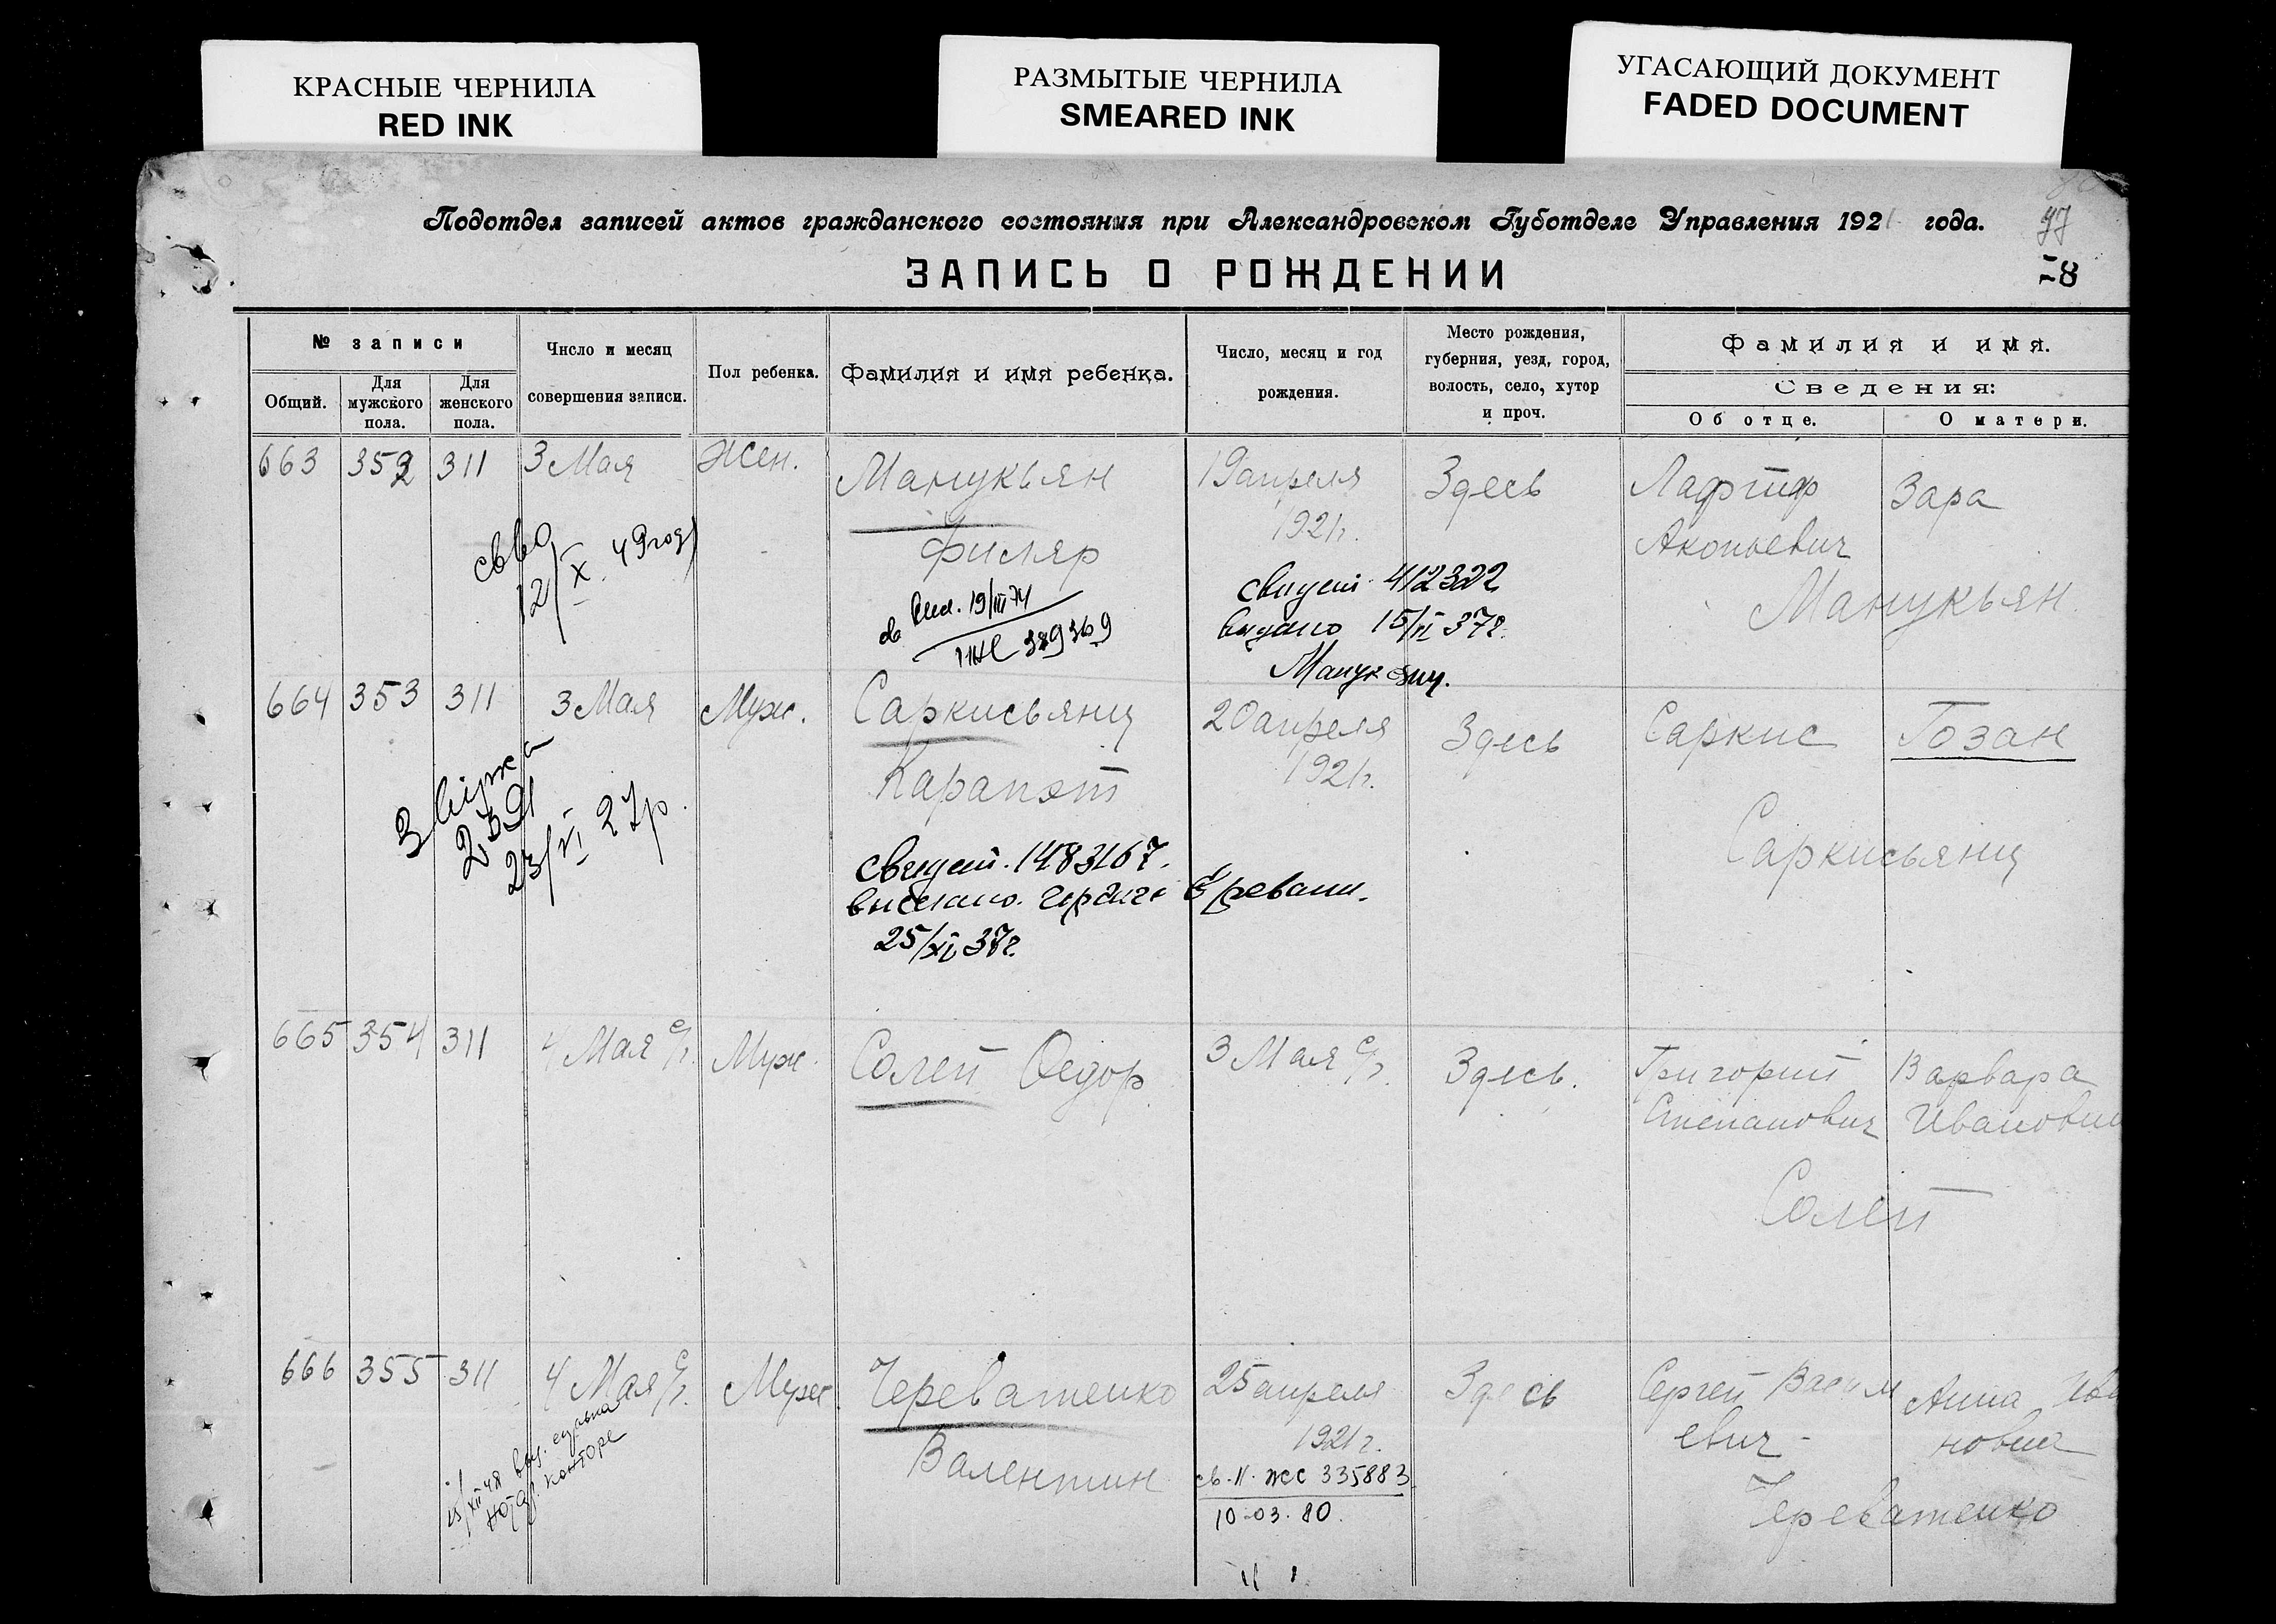 КРАСНЫЕ ЧЕРНИЛА
RED INK
РАЗМЫТЫЕ ЧЕРНИЛА
SMEARED INK
УГАСАЮЩИЙ ДОКУМЕНТ
FADED DOCUMENT
Подотдел записей актов гражданского состояния при Александровском Губотделе Управления 1921 года.
77
ЗАПИСЬ О РОЖДЕНИИ
№ записи
Общий.
Для мужского пола.
Для женского пола.
Число и месяц
совершения записи.
Пол ребенка.
Фамилия и имя ребенка.
Число, месяц и год
рождения.
Место рождения,
губерния, уезд, город,
волость, село, хутор
и проч.
Фамилия и имя.
Сведения:
Об отце.
О матери.
663 352 311 3 Мая Жен. Манукьян 19 апреля Здесь Зара
1921г.
Акопьевич
12/X 49 год
19/III 74
389369
свидет 412322
выдано 15/II 37г.
Манукьян
664 353 311 3 Мая Муж. Саркисьянц 20 апреля Здесь Саркис Гозан
1921г.
Карапэт
2391
23/VI 27р.
Саркисьянц
свидет. 1483167.
выслано Еревани.
25/XI 37г.
665 354 311 4 Мая с/г. Муж. Солей Федор 3 Мая с/г. Здесь. Григорий Варвара
Степанович
Солей
666 355 311 4 Мая с/г. Муж. Череватенко 25 апреля Здесь Сергей Анна
1921г.
евич новна
Валентин
Череватенко
нотар. конторе
св. II-ЖС 335883
10-03.80.